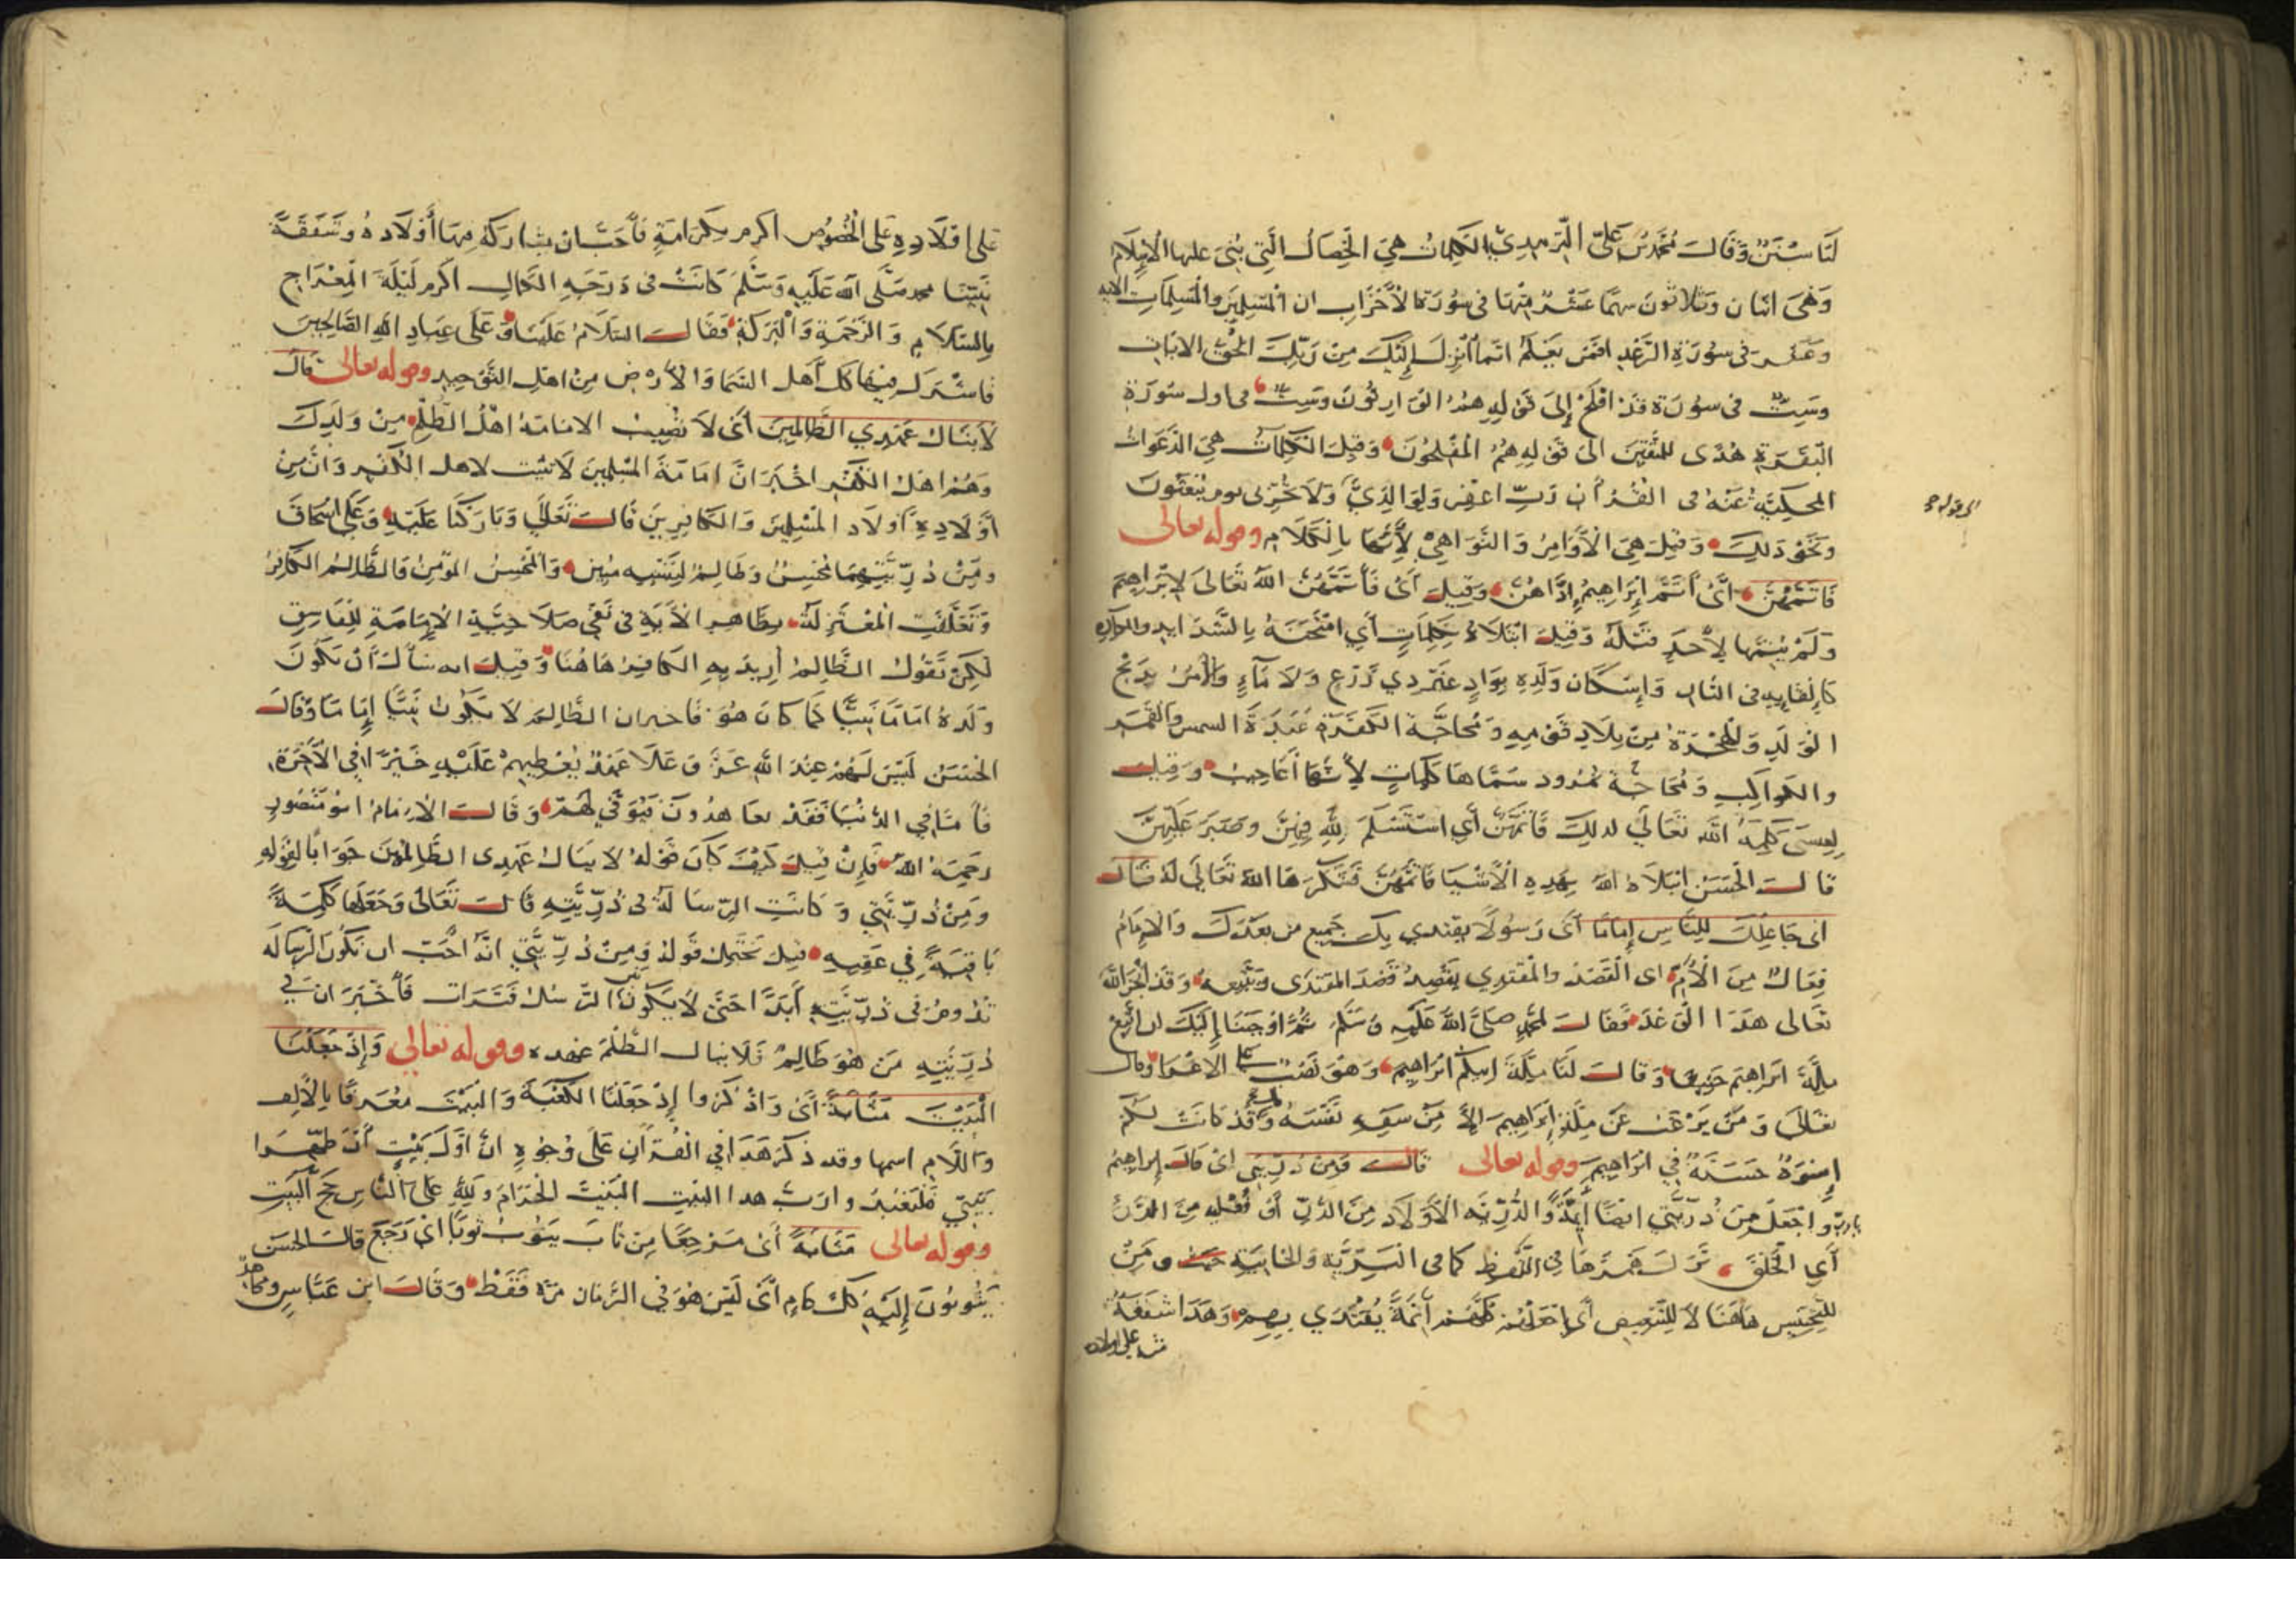 لَنَا سُنَنٌ وَقَالَ مُحَمَّدُ بْنُ عَلِيٍّ التِّرْمِذِيُّ الكَلِمَاتُ هِيَ الْخِصَالُ الَّتِي بُنِيَ عليها الْإِسْلَامُ
وَهِيَ اثنان وَثَلَاثُونَ سهمًا عَشْرٌ مِنْهَا فِي سُورَةِ الْأَحْزَابِ ان الْمُسْلِمِينَ وَالْمُسْلِمَاتِ الايه
وعَشْرٌ فِي سُورَةِ الرَّعْدِ افَمَنْ يَعْلَمُ انَّمَا أُنْزِلَ إِلَيْكَ مِنْ رَبِّكَ الْحَقُّ الايات
وسِتٌّ في سُورَة قَدْ افْلَحَ إِلَى قَوْلِهِ هُمُ الْوَارِثُونَ وَسِتٌّ في اول سُورَةِ
الْبَقَرَةِ هُدًى للمُتَّقِينَ الى قَوْلِهِ هُمُ الْمُفْلِحُونَ وَقِيلَ الكَلِمَاتُ هِيَ الدَّعَوَاتُ
المحكِيَّةُ عَنْهُ في الْقُرْآن رَبِّ اغْفِرْ لِي وَلِوَالِدَيَّ وَلَا تُخْزِنِي يوم يُبْعَثُونَ
الى قوله
وَنَحْوُ ذَلِكَ وَقِيلَ هِيَ الْأَوَامِرُ وَالنَّوَاهِي لِأَنَّهَا بِالْكَلَامِ وقوله تعالى
فَأَتَمَّهُنَّ أَيْ أَتَمَّ إِبْرَاهِيمُ إِدَّاهُنَّ وَقِيلَ أَيْ فَأَتَمَّهُنَّ اللهُ تَعَالَى لِإِبْرَاهِيمَ
وَلَمْ يُتِمَّهَا لِأَحَدٍ قَبْلَهُ وَقِيلَ ابْتَلَاهُ بِكَلِمَاتٍ أَيِ امْتَحَنَهُ بِالشَّدَايِدِ والمكاره
كَإِلْقَايِهِ فِي النَّارِ وَإِسْكَانِ وَلَدِهِ بِوَادٍ غَيْرِ ذِي زَرْعٍ وَلَا مَاءٍ وَالْأَمْرُ بِذَبْحِ
الْوَلَدِ وَالْهِجْرَةُ مِنْ بِلَادِ قَوْمِهِ وَمُحَاجَّةُ الكَفَرَةِ عَبَدَةِ الشمس والقمر
والكواكِبِ وَمُحَاجَّةُ نمرود سَمَّاهَا كَلِمَاتٍ لِأَنَّهَا أَعَاجِيبُ وَقِيلَ
لِعِيسَى كَلِمَةُ اللَّهِ تَعَالَى لذلِكَ فَأَتَمَّهُنَّ أَيِ اسْتَسْلَمَ لِلَّهِ فِيهِنَّ وصَبَرَ عَلَيْهِنَّ
قَالَ الْحَسَنُ ابْتَلَاهُ اللهُ بِهَذِهِ الْأَشْيَا فَأَتَمَّهُنَّ فَشَكَرَهَا اللهُ تَعَالَى لَهُ قَالَ
انى جَاعِلُكَ لِلنَّاسِ إِمَامًا أَيْ رَسُولًا يقتدي بِكَ جَمِيعُ من بَعْدَكَ وَالْإِمَامُ
فِعَالٌ مِنَ الْأَمِّ اى الْقَصْدِ وَالْمُقْتَدِي يَقْصِدُ قَصْدَ المقتدَى وَيَتْبَعه وَقَدْ أَنْجَزَ اللَّهُ
تعالى هَذَا الْوَعْدَ فَقَالَ لمُحَمَّدٍ صَلَّى اللهُ عَلَيْهِ وَسَلَّمَ ثُمَّ أَوْحَيْنَا إِلَيْكَ ان اتَّبِعْ
مِلَّةَ ابْرَاهِيمَ حَنِيفًا وَقَالَ لَنَا مِلَّةَ ابيكم ابْرَاهِيمَ وَهُوَ نَصْبٌ على الاغرا وقال
تعَالَى وَمَنْ يَرْغَبُ عَنْ مِلَّةِ إِبْرَاهِيمَ الَّا مَنْ سَفِهَ نَفْسَهُ وَقَدْ كَانَتْ لَكُمْ
إِسْوَةٌ حَسَنَةٌ فِي ابْرَاهِيمَ وقوله تعالى قَالَ وَمِنْ ذُرِّيَّتِي اىْ قَالَ إِبْرَاهِيمُ
يارب وَاجْعَلْ مِنْ ذُرِّيَّتِي ايضًا أَيِمَّةً وَالذُّرِّيَّةُ الْأَوْلَادُ مِنَ الذَّرِّ أَوْ فُعْلِيه مِنَ الذَّرْءِ
أَيِ الْخَلْقِ تُرِكَ هَمْزُهَا فِي اللَّفْظِ كما في الْبَرِيَّةِ وَالخَابِيَةِ ومِنْ
لِلتَّجْنِيسِ هَاهُنَا لَا لِلتَّبْعِيضِ أَيِ اجْعَلْهُمْ كُلَّهُمْ أَيِمَّةً يُقْتَدَي بِهِمْ وَهَذَا شَفَقَةٌ
منه على اولاده
عَلَى اوْلَادِهِ عَلَى الْخُصُوصِ اكرم بكَرَامَةٍ فَأَحَبَّ ان يشاركه فيها أَوْلَاده وشَفَقَةُ
نَبِيِّنَا محمد صَلَّى الله عَلَيْهِ وَسَلَّمَ كَانَتْ فى دَرَجَةِ الكَمَالِ اكرم لَيْلَةَ الْمِعْرَاجِ
بِالسَّلَامِ وَالرَّحْمَةِ وَالْبَرَكَةِ فَقَالَ السَّلَامُ عَلَيْنَا وَعَلَى عِبَادِ اللهِ الصَّالِحِينَ
فاشْتَرَكَ فِيهَا كُلُّ أَهْلِ السَّمَا وَالْأَرْضِ مِنْ اهْلِ التَّوْحِيدِ وقوله تعالى قَالَ
لَا يَنَالُ عَهْدِي الظَّالِمِينَ أَيْ لَا تُصِيبُ الامَامَةُ اهْلَ الظُّلْمِ مِنْ وَلَدِكَ
وَهُمْ اهْلُ الكُفْرِ اخْبَرَ انَّ امَامَةَ الْمُسْلِمِينَ لَا تثبت لاهل الْكُفْرِ وَانَّ مِنْ
أَوْلَادِهِ أَوْلَادَ الْمُسْلِمِينَ وَالْكَافِرِينَ قَالَ تَعَالَى وَبَارَكْنَا عَلَيْهِ وَعَلَى اسْحَاقَ
وَمِنْ ذُرِّيَّتِهِمَا مُحْسِنٌ وَظَالِمٌ لِنَفْسِهِ مُبِينٌ وَالْمُحْسِنُ الْمُؤْمِنُ وَالظَّالِمُ الْكَافِرُ
وَتَعَلَّقَتِ الْمُعْتَزِلَةُ بظَاهِرِ الْآيَةِ فِي نَفْيِ صَلَاحِيَّةِ الْإِمَامَةِ لِلْفَاسِقِ
لَكِنْ نَقُولُ الظَّالِمُ أُرِيدَ بِهِ الْكَافِرُ هَاهُنَا وَقِيلَ انه سَأَلَ أَنْ يَكُونَ
وَلَدُهُ امَامًا نَبِيًّا كَمَا كَانَ هُوَ فَاخبر ان الظَّالِمَ لَا يَكُونُ نَبِيًّا إِمَامًا وَقَالَ
الْحَسَنُ لَيْسَ لَهُمْ عِنْدَ اللَّهِ عَزَّ وَعَلَا عَهْدٌ يُعْطِيهِمْ عَلَيْهِ خَيْرًا فِي الْآخِرَةِ
فَأَمَّا فِي الدُّنْيَا فَقَدْ يعَاهَدُونَ فَيُوَفَّى لَهُمْ وَقَالَ الْإِمَامُ ابُو مَنْصُورٍ
رَحِمَهُ اللهُ فَإِنْ قِيلَ كَيْفَ كَانَ قَوْلُهُ لَا يَنَالُ عَهْدِى الظَّالِمِينَ جَوَابًا لِقَوْلِهِ
وَمِنْ ذُرِّيَّتِي وَكَانَتِ الرِّسَالَةُ فى ذُرِّيَّتِهِ قَالَ تَعَالَى وَجَعَلَهَا كَلِمَةً
بَاقِيَةً فِي عَقِبِهِ قِيلَ يَحْتَمِلُ قَوْلُهُ وَمِنْ ذُرِّيَّتِي انَّهُ احَبَّ ان تَكُونَ الرِّسَالَه
تَدُومُ فِي ذُرِّيَّتِهِ أَبَدًا حَتَّى لَا يَكُونَ بين الرُّسُلِ فَتَرَات فَأَخْبَرَ انَّ فِي
ذُرِّيَّتِهِ مَنْ هُوَ ظَالِمٌ فَلَا ينال الظُّلْمَ عَهْده وقوله تعالى وَإِذْ جَعَلْنَا
الْبَيْتَ مَثَابَةً أَىْ وَاذْكُرُوا إِذْ جَعَلْنَا الكَعْبَةَ وَالْبَيْتَ مُعَرَّفًا بِالْأَلِفِ
وَاللَّامِ اسمها وقد ذكَرَ هَذَا فِي الْقُرْآنِ عَلَى وُجُوهٍ انَّ اوَّلَ بَيْتٍ أَنْ طَهِّرَا
بَيْتِيَ فَلْيَعْبُدُوا رَبَّ هذا البيتِ البَيْتَ الْحَرَامَ وَلِلَّهِ عَلَى النَّاسِ حَجُّ الْبَيْتِ
وقوله تعالى مَثَابَةً أَىْ مَرْجِعًا مِنْ ثَابَ يَثُوبُ ثَوْبًا اىْ رَجَعَ قَالَ الْحَسَن
يَثُوبُونَ إِلَيْهِ كُلَّ عَامٍ اىْ لَيْسَ هُوَ فِي الزَّمَانِ مَرَّة فَقَطْ وَقَالَ ابن عَبَّاسٍ ومجاهد